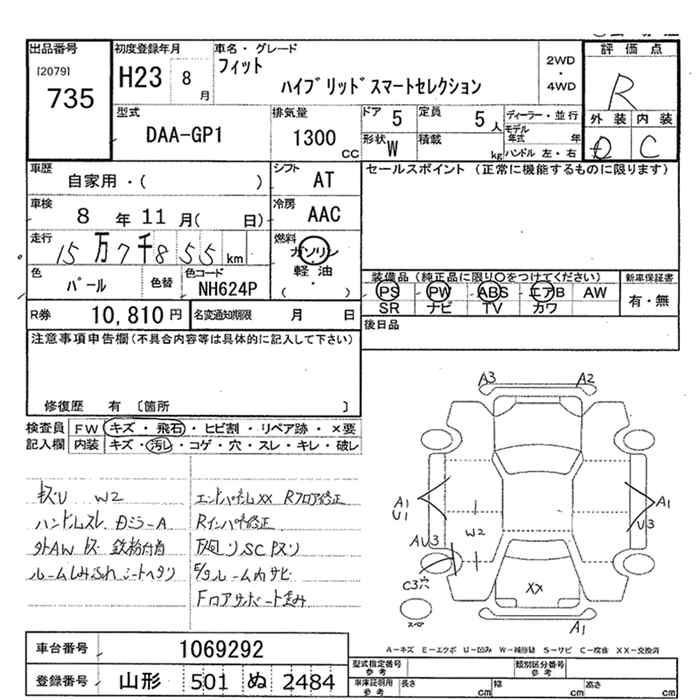 出品番号
[2079]
735
初度登録年月
H23 8月
車名・グレード
フィット
ハイブリッドスマートセレクション
2WD
・
4WD
評価点
R
外装 内装
C
型式
DAA-GP1
排気量
1300 CC
ドア 5
定員 5人
形状 W
積載 kg
ディーラー・並行
モデル年式 年
ハンドル 左・右
車歴
自家用・( )
シフト AT
セールスポイント (正常に機能するものに限ります)
車検 8年 11月( 日)
冷房 AAC
走行 15万7千855 km
燃料 ガソリン・軽油
( )
色 パール
色替
色コード NH624P
装備品 (純正品に限り○をつけてください)
新車保証書
PS PW ABS エアB AW
有・無
SR ナビ TV カワ
R券 10,810円
名変通知期限 月 日
後日品
注意事項申告欄(不具合内容等は具体的に記入して下さい)
修復歴 有 〔箇所 〕
検査員記入欄
FW キズ・飛石・ヒビ割・リペア跡・×要
内装 キズ・汚レ・コゲ・穴・スレ・キレ・破レ
W2
エンドパネルXX Rフロア修正
ハンドルスレ
Rインパネ修正
鉄粉付着
ルーム内サビ
Fロアサポート歪み
A3 A2
A1
U1
A1
U3
W2
AU3
C3穴
XX
A1
A-キズ E-エクボ U-凹み W-補修跡 S-サビ C-腐食 XX-交換済
車台番号 1069292
登録番号 山形 501 ぬ 2484
型式指定番号 参考
類別区分番号 参考
車庫証明用 参考
長さ cm
幅 cm
高さ cm